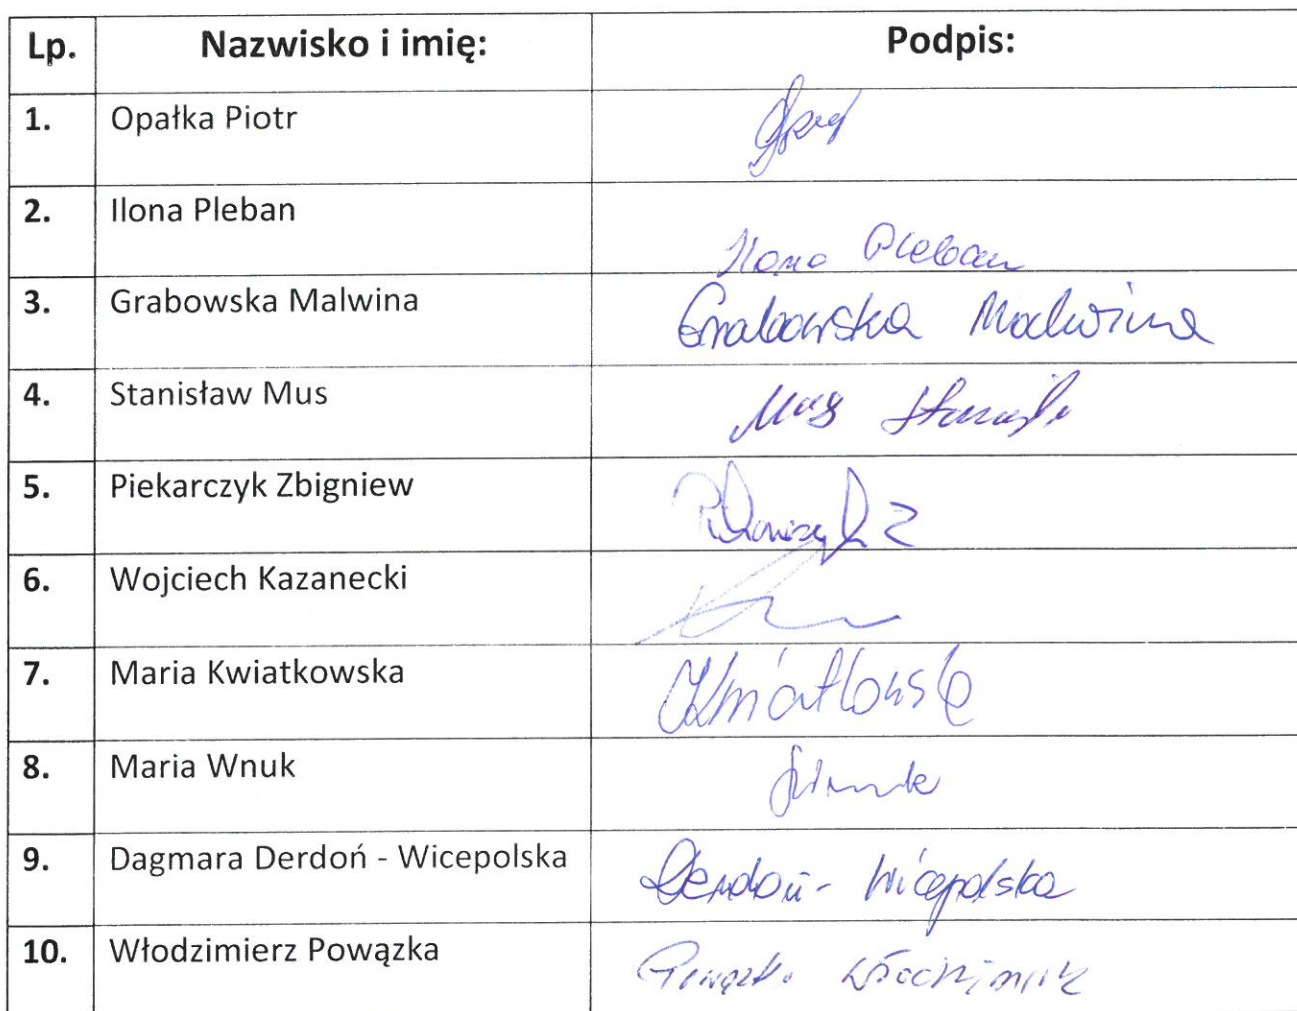 Lp. Nazwisko i imię: Podpis:
1. Opałka Piotr
2. Ilona Pleban Ilona Pleban
3. Grabowska Malwina Grabowska Malwina
4. Stanisław Mus Mus
5. Piekarczyk Zbigniew
6. Wojciech Kazanecki
7. Maria Kwiatkowska
8. Maria Wnuk
9. Dagmara Derdoń - Wicepolska Derdoń - Wicepolska
10. Włodzimierz Powązka